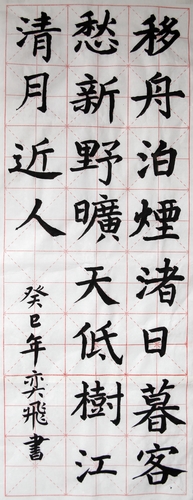 移舟泊煙渚日暮客
愁新野曠天低樹江
清月近人
癸巳年奕飛書